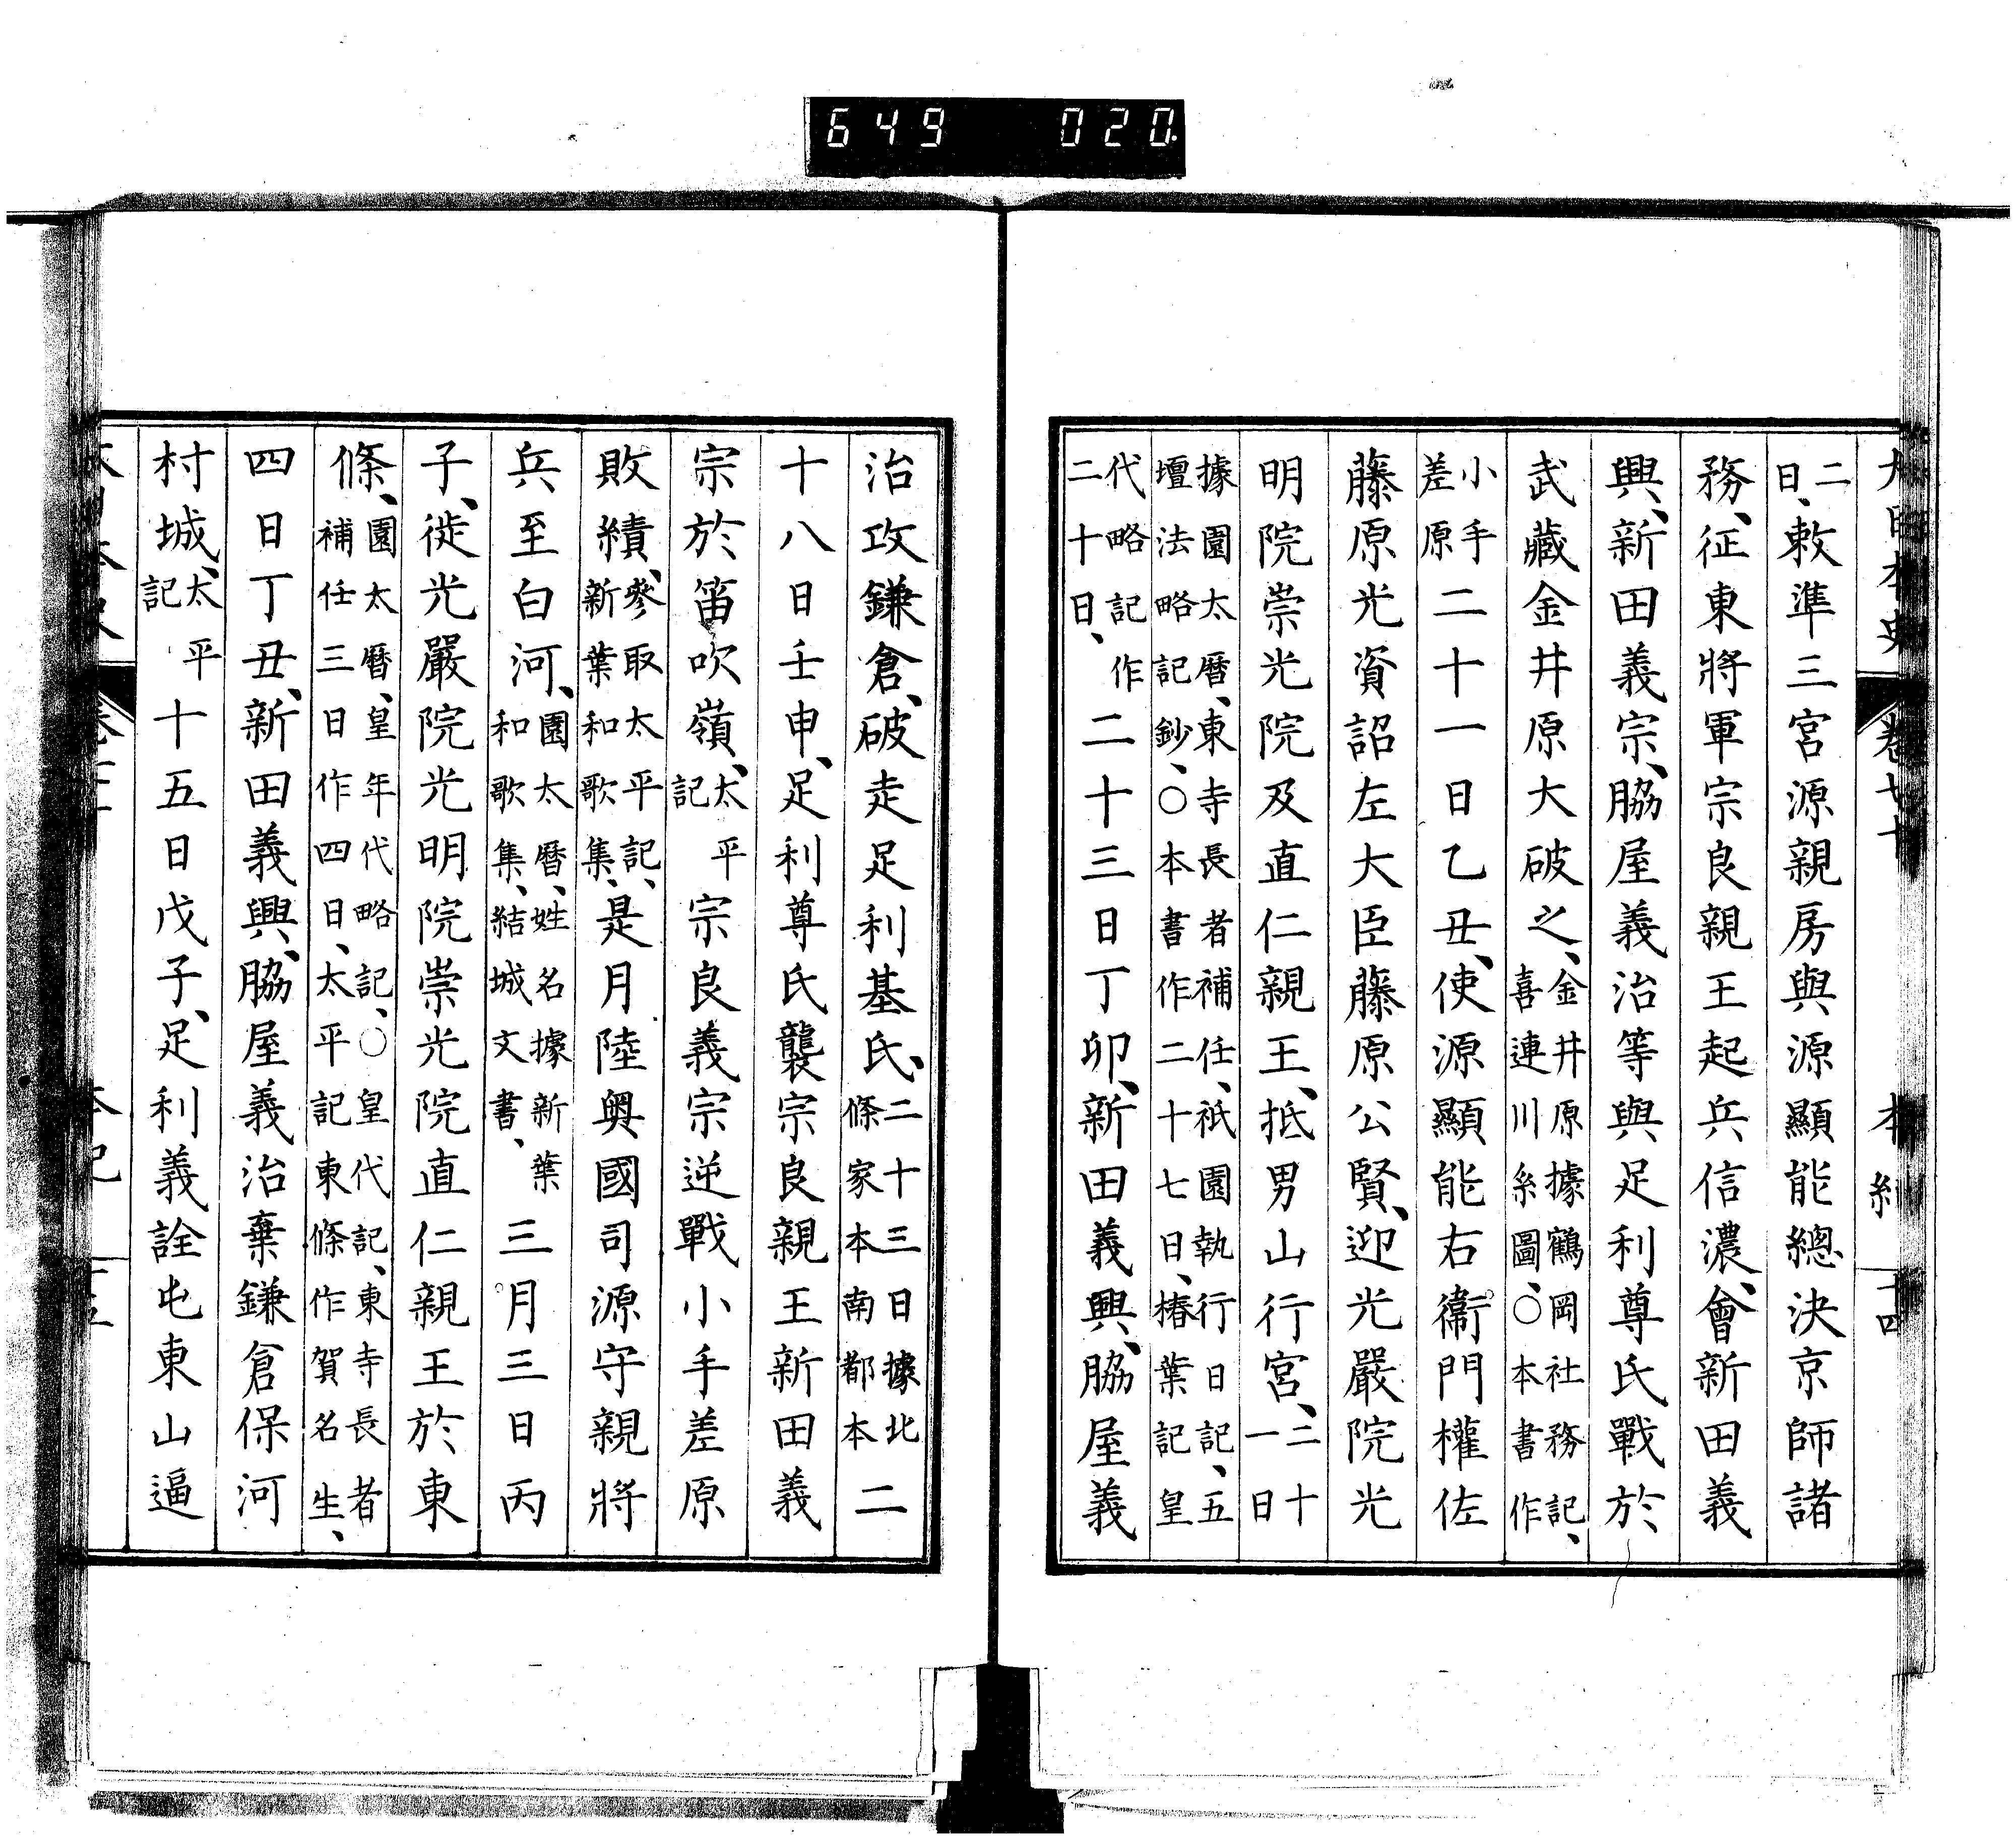 649 020
大日本史 卷七十 本紀 十四
二日、敕準三宮源親房與源顯能總決京師諸
務、征東將軍宗良親王起兵信濃、會新田義
興、新田義宗、脇屋義治等與足利尊氏戰於
武藏金井原大破之、金井原據鶴岡社務記、喜連川系圖、○本書作
小手差原二十一日乙丑、使源顯能右衞門權佐
藤原光資詔左大臣藤原公賢、迎光嚴院光
明院崇光院及直仁親王、抵男山行宮、二十一日
據園太曆、東寺長者補任、祇園執行日記、五壇法略記鈔、○本書作二十七日、椿葉記皇
代略記作二十日、二十三日丁卯、新田義興、脇屋義
治攻鎌倉、破走足利基氏、二十三日據北條家本南都本二
十八日壬申、足利尊氏襲宗良親王新田義
宗於笛吹嶺、太平記宗良義宗逆戰小手差原
敗績、參取太平記、新葉和歌集、是月陸奧國司源守親將
兵至白河、園太曆、姓名據新葉和歌集、結城文書、三月三日丙
子、徙光嚴院光明院崇光院直仁親王於東
條、園太曆、皇年代略記、○皇代記、東寺長者補任三日作四日、太平記東條作賀名生、
四日丁丑、新田義興、脇屋義治棄鎌倉保河
村城、太平記十五日戊子、足利義詮屯東山逼